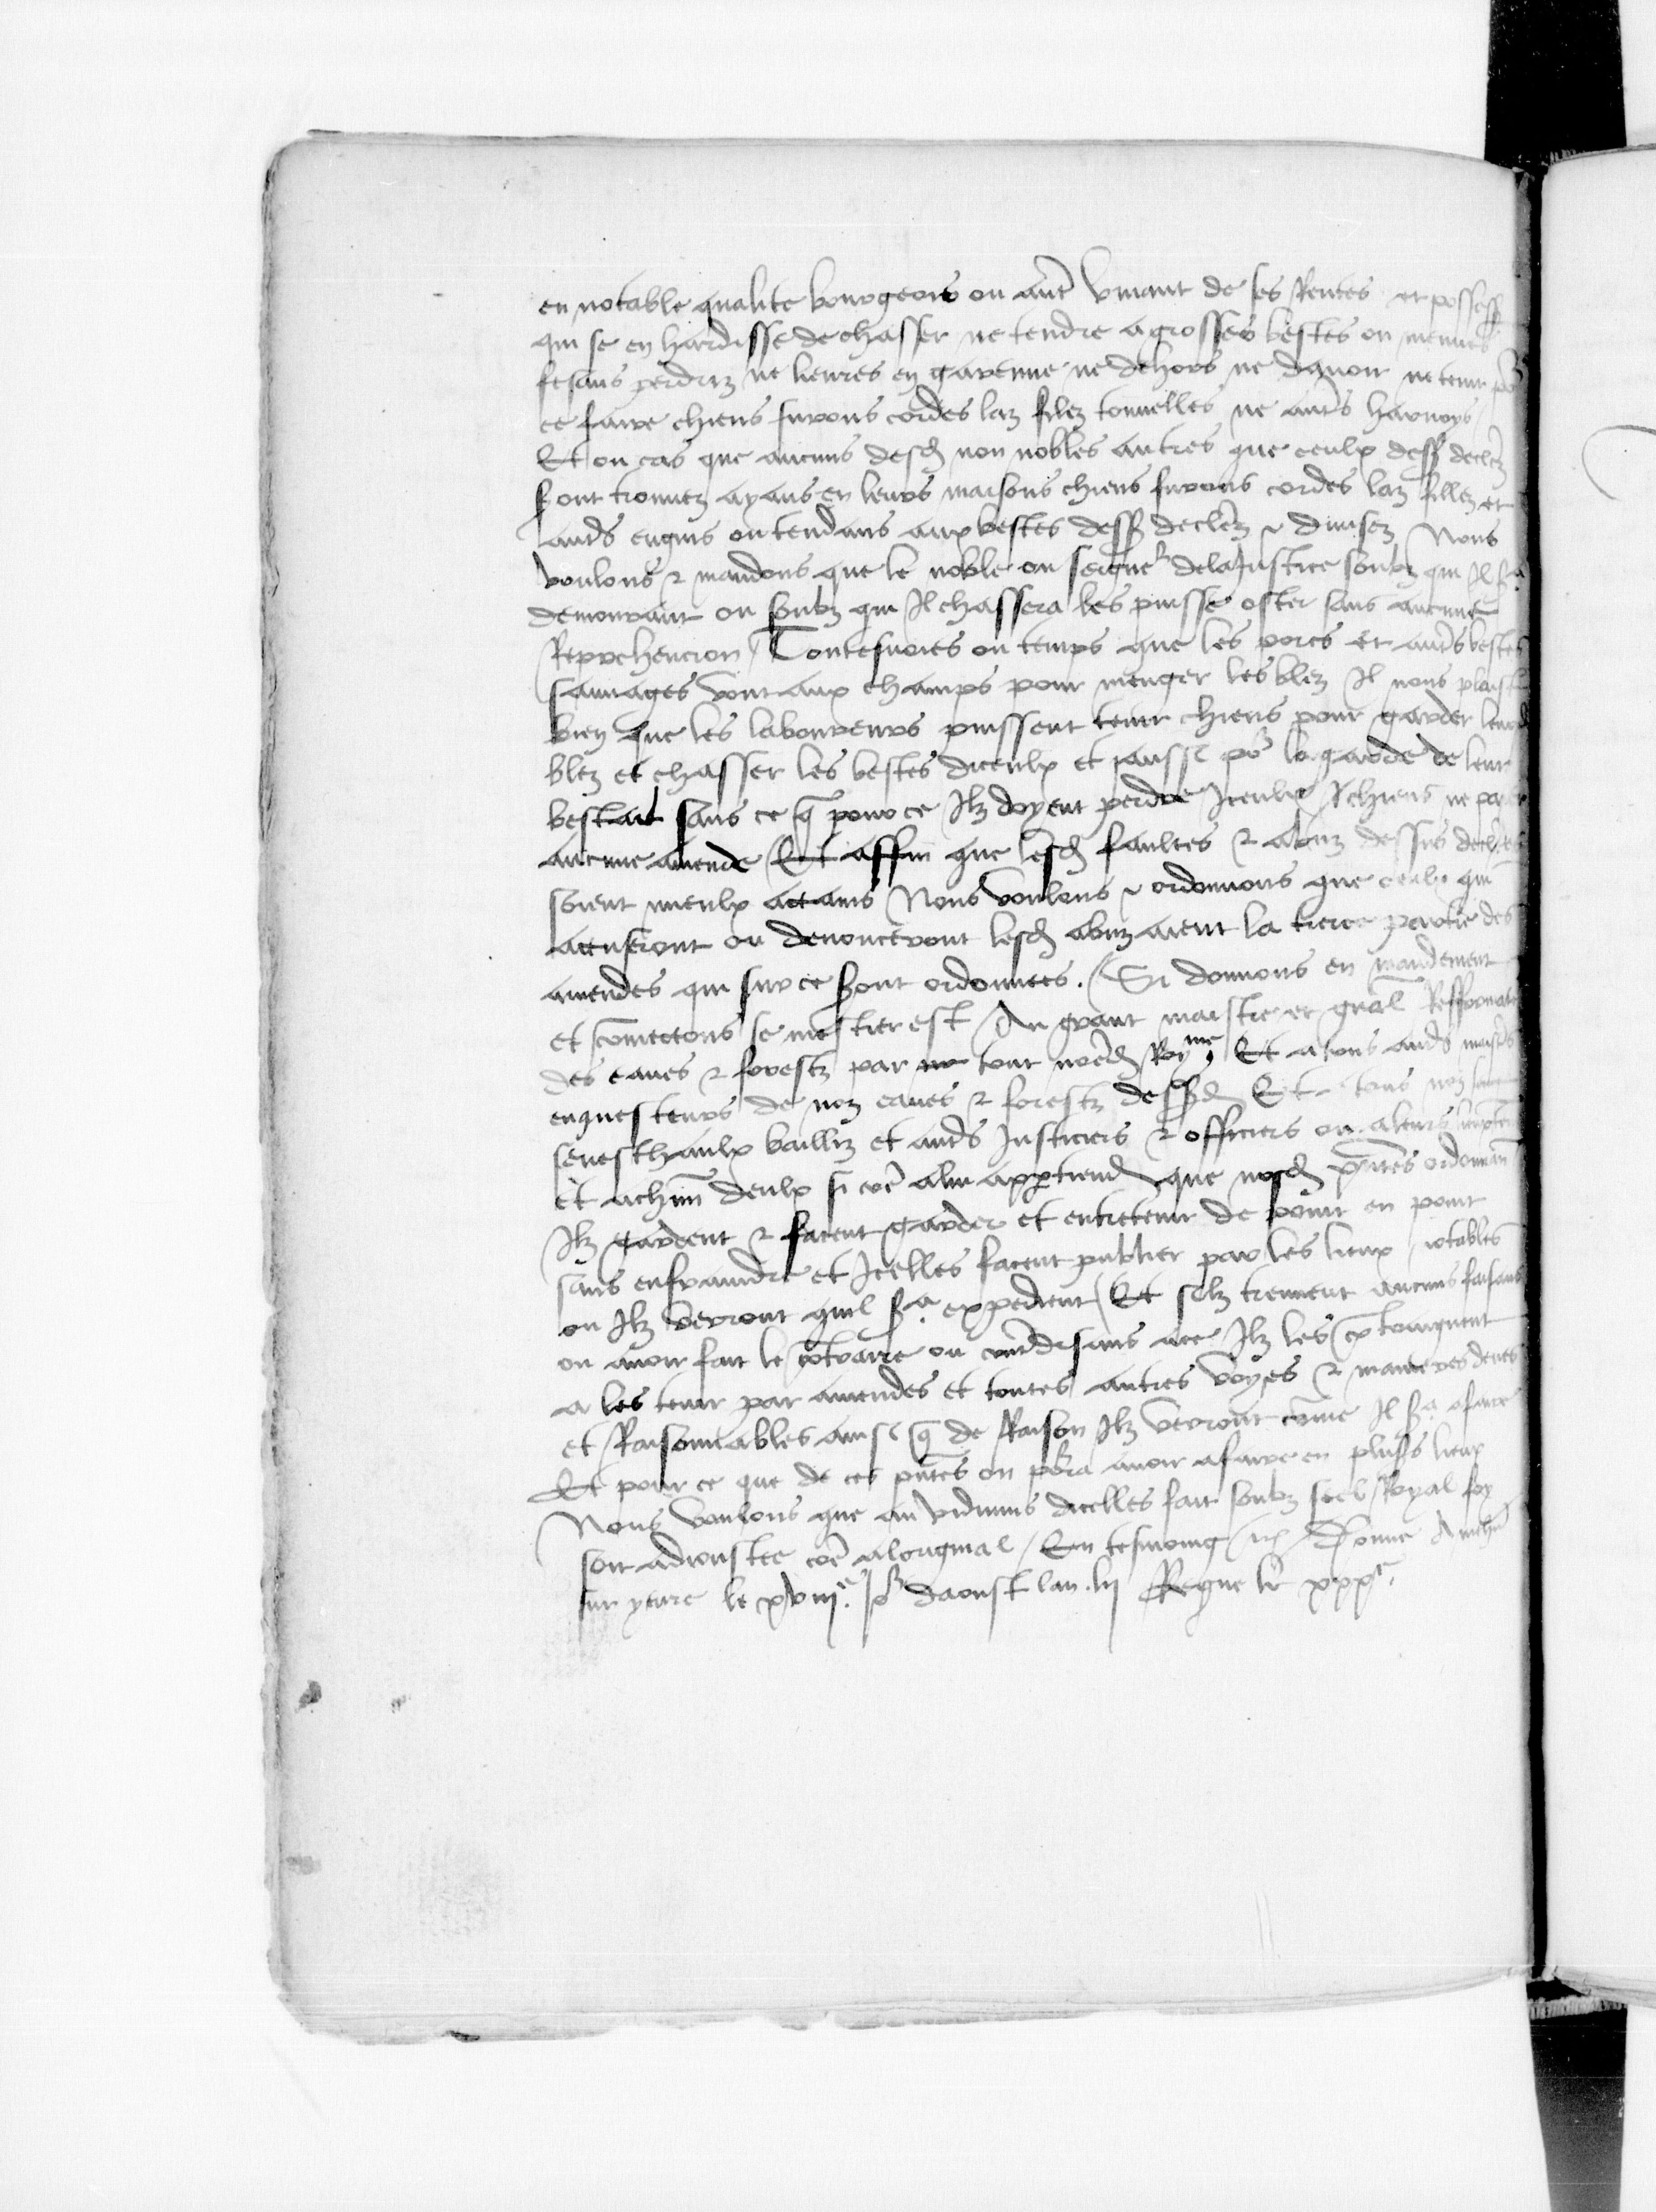 en notable qualite bourgeois ou aut̃ vivant de ses Rentes et possess
qui se en hardisse de chasser ne tendre a grosses bestes ou menues
fesans perdriz ne lieures en garenne ne dehors ne dauoir ne tenir po͛
ce faire chiens furons cordes laz filez tonnelles ne aut̃s harnoys
Et ou cas que aucuns desd non nobles autres que ceulx dess declerez
s͛ont trouuez ayans en leurs maisons chiens furons cordes laz fillez et
aut̃s engins ou tendans aux bestes dess declerez & diuisez Nous
voulons & mandons que le noble ou seigne͛ de la Justice soubz qui Il s͛a
demourant ou soubz qui Il chassera les puisse oster sans aucune
Reprehencion Toutesuoies ou temps que les porcs et aut̃s bestes
sauuages vont aux champs pour menger les blez Il nous plaist
bien que les laboureurs puissent tenir chiens pour garder leurs
blez et chasser les bestes diceulx et aussi po͛ la garde de leur
bestail sans ce q̃ pour ce Ilz doyent perdre Iceulx chiens ne paier
aucune amende Et affin que lesd faultes & abuz dessus declerez
soient mieulx actains Nous voulons & ordonnons que ceulx qui
accuseront ou denonceront lesd abuz aient la tierce partie des
amendes qui sur ce s͛ont ordonnees. Si donnons en mandement
et com̃ectons se mestier est Au grant maistre et gnãl Refformate
des eaues & forestz par tout nr̃ed Roy.me Et a tous aut̃s maistr̃s
enquesteurs de noz eaues & forestz dessd Et a tous noz
seneschaulx bailliz et aut̃s Justiciers & officiers ou a leurs lieuxten
et a chũn deulx si cõe a lui app̃tiend que nosd p̃ñtes ordonnan
Ilz gardent & facent garder et entretenir de point en point
sans enfraindre et Icelles facent publier par les lieux notables
ou Ilz verront quil s͛a expedient Et silz treuuent aucuns faisans
ou auoir fait le cõtraire ou cont̃disans a ce Ilz les cõtraignent
a les tenir par amendes et toutes autres voyes & manieres deues
et Raisonnables ainsi q̃ de Raison Ilz verront cõme Il s͛a a faire
Et pour ce que de ces p̃ñtes on po͛ra auoir a faire en pluss lieux
Nous voulons que au vidimus dicelles fait soubz seel Royal foy
soit adioustee cõe a loriginal En tesmoing &c Donne
sur yeure le xviije Jo͛ daoust lan .lij Regne le xxxe.